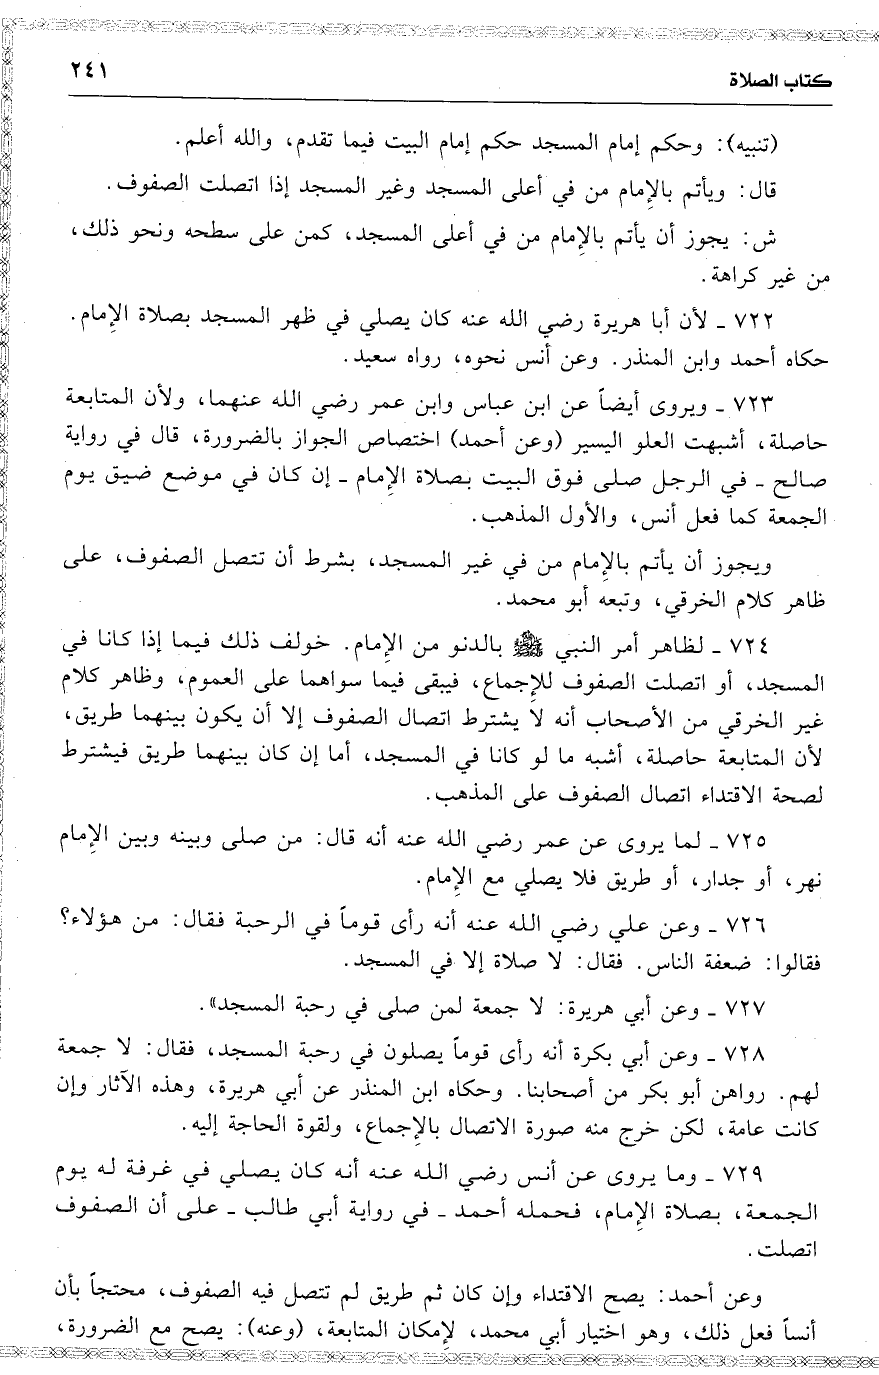 كتاب الصلاة ٢٤١
(تنبيه): وحكم إمام المسجد حكم إمام البيت فيما تقدم، والله أعلم.
قال: ويأتم بالإمام من في أعلى المسجد وغير المسجد إذا اتصلت الصفوف.
ش: يجوز أن يأتم بالإمام من في أعلى المسجد، كمن على سطحه ونحو ذلك،
من غير كراهة.
٧٢٢ ـ لأن أبا هريرة رضي الله عنه كان يصلي في ظهر المسجد بصلاة الإمام.
حكاه أحمد وابن المنذر. وعن أنس نحوه، رواه سعيد.
٧٢٣ ـ ويروى أيضاً عن ابن عباس وابن عمر رضي الله عنهما، ولأن المتابعة
حاصلة، أشبهت العلو اليسير (وعن أحمد) اختصاص الجواز بالضرورة، قال في رواية
صالح ـ في الرجل صلى فوق البيت بصلاة الإمام ـ إن كان في موضع ضيق يوم
الجمعة كما فعل أنس، والأول المذهب.
ويجوز أن يأتم بالإمام من في غير المسجد، بشرط أن تتصل الصفوف، على
ظاهر كلام الخرقي، وتبعه أبو محمد.
٧٢٤ ـ لظاهر أمر النبي ﷺ بالدنو من الإمام. خولف ذلك فيما إذا كانا في
المسجد، أو اتصلت الصفوف للإجماع، فيبقى فيما سواهما على العموم، وظاهر كلام
غير الخرقي من الأصحاب أنه لا يشترط اتصال الصفوف إلا أن يكون بينهما طريق،
لأن المتابعة حاصلة، أشبه ما لو كانا في المسجد، أما إن كان بينهما طريق فيشترط
لصحة الاقتداء اتصال الصفوف على المذهب.
٧٢٥ ـ لما يروى عن عمر رضي الله عنه أنه قال: من صلى وبينه وبين الإمام
نهر، أو جدار، أو طريق فلا يصلي مع الإمام.
٧٢٦ ـ وعن علي رضي الله عنه أنه رأى قوماً في الرحبة فقال: من هؤلاء؟
فقالوا: ضعفة الناس. فقال: لا صلاة إلا في المسجد.
٧٢٧ ـ وعن أبي هريرة: لا جمعة لمن صلى في رحبة المسجد».
٧٢٨ ـ وعن أبي بكرة أنه رأى قوماً يصلون في رحبة المسجد، فقال: لا جمعة
لهم. رواهن أبو بكر من أصحابنا. وحكاه ابن المنذر عن أبي هريرة، وهذه الآثار وإن
كانت عامة، لكن خرج منه صورة الاتصال بالإجماع، ولقوة الحاجة إليه.
٧٢٩ ـ وما يروى عن أنس رضي الله عنه أنه كان يصلي في غرفة له يوم
الجمعة، بصلاة الإمام، فحمله أحمد ـ في رواية أبي طالب ـ على أن الصفوف
اتصلت.
وعن أحمد: يصح الاقتداء وإن كان ثم طريق لم تتصل فيه الصفوف، محتجاً بأن
أنساً فعل ذلك، وهو اختيار أبي محمد، لإمكان المتابعة، (وعنه): يصح مع الضرورة،